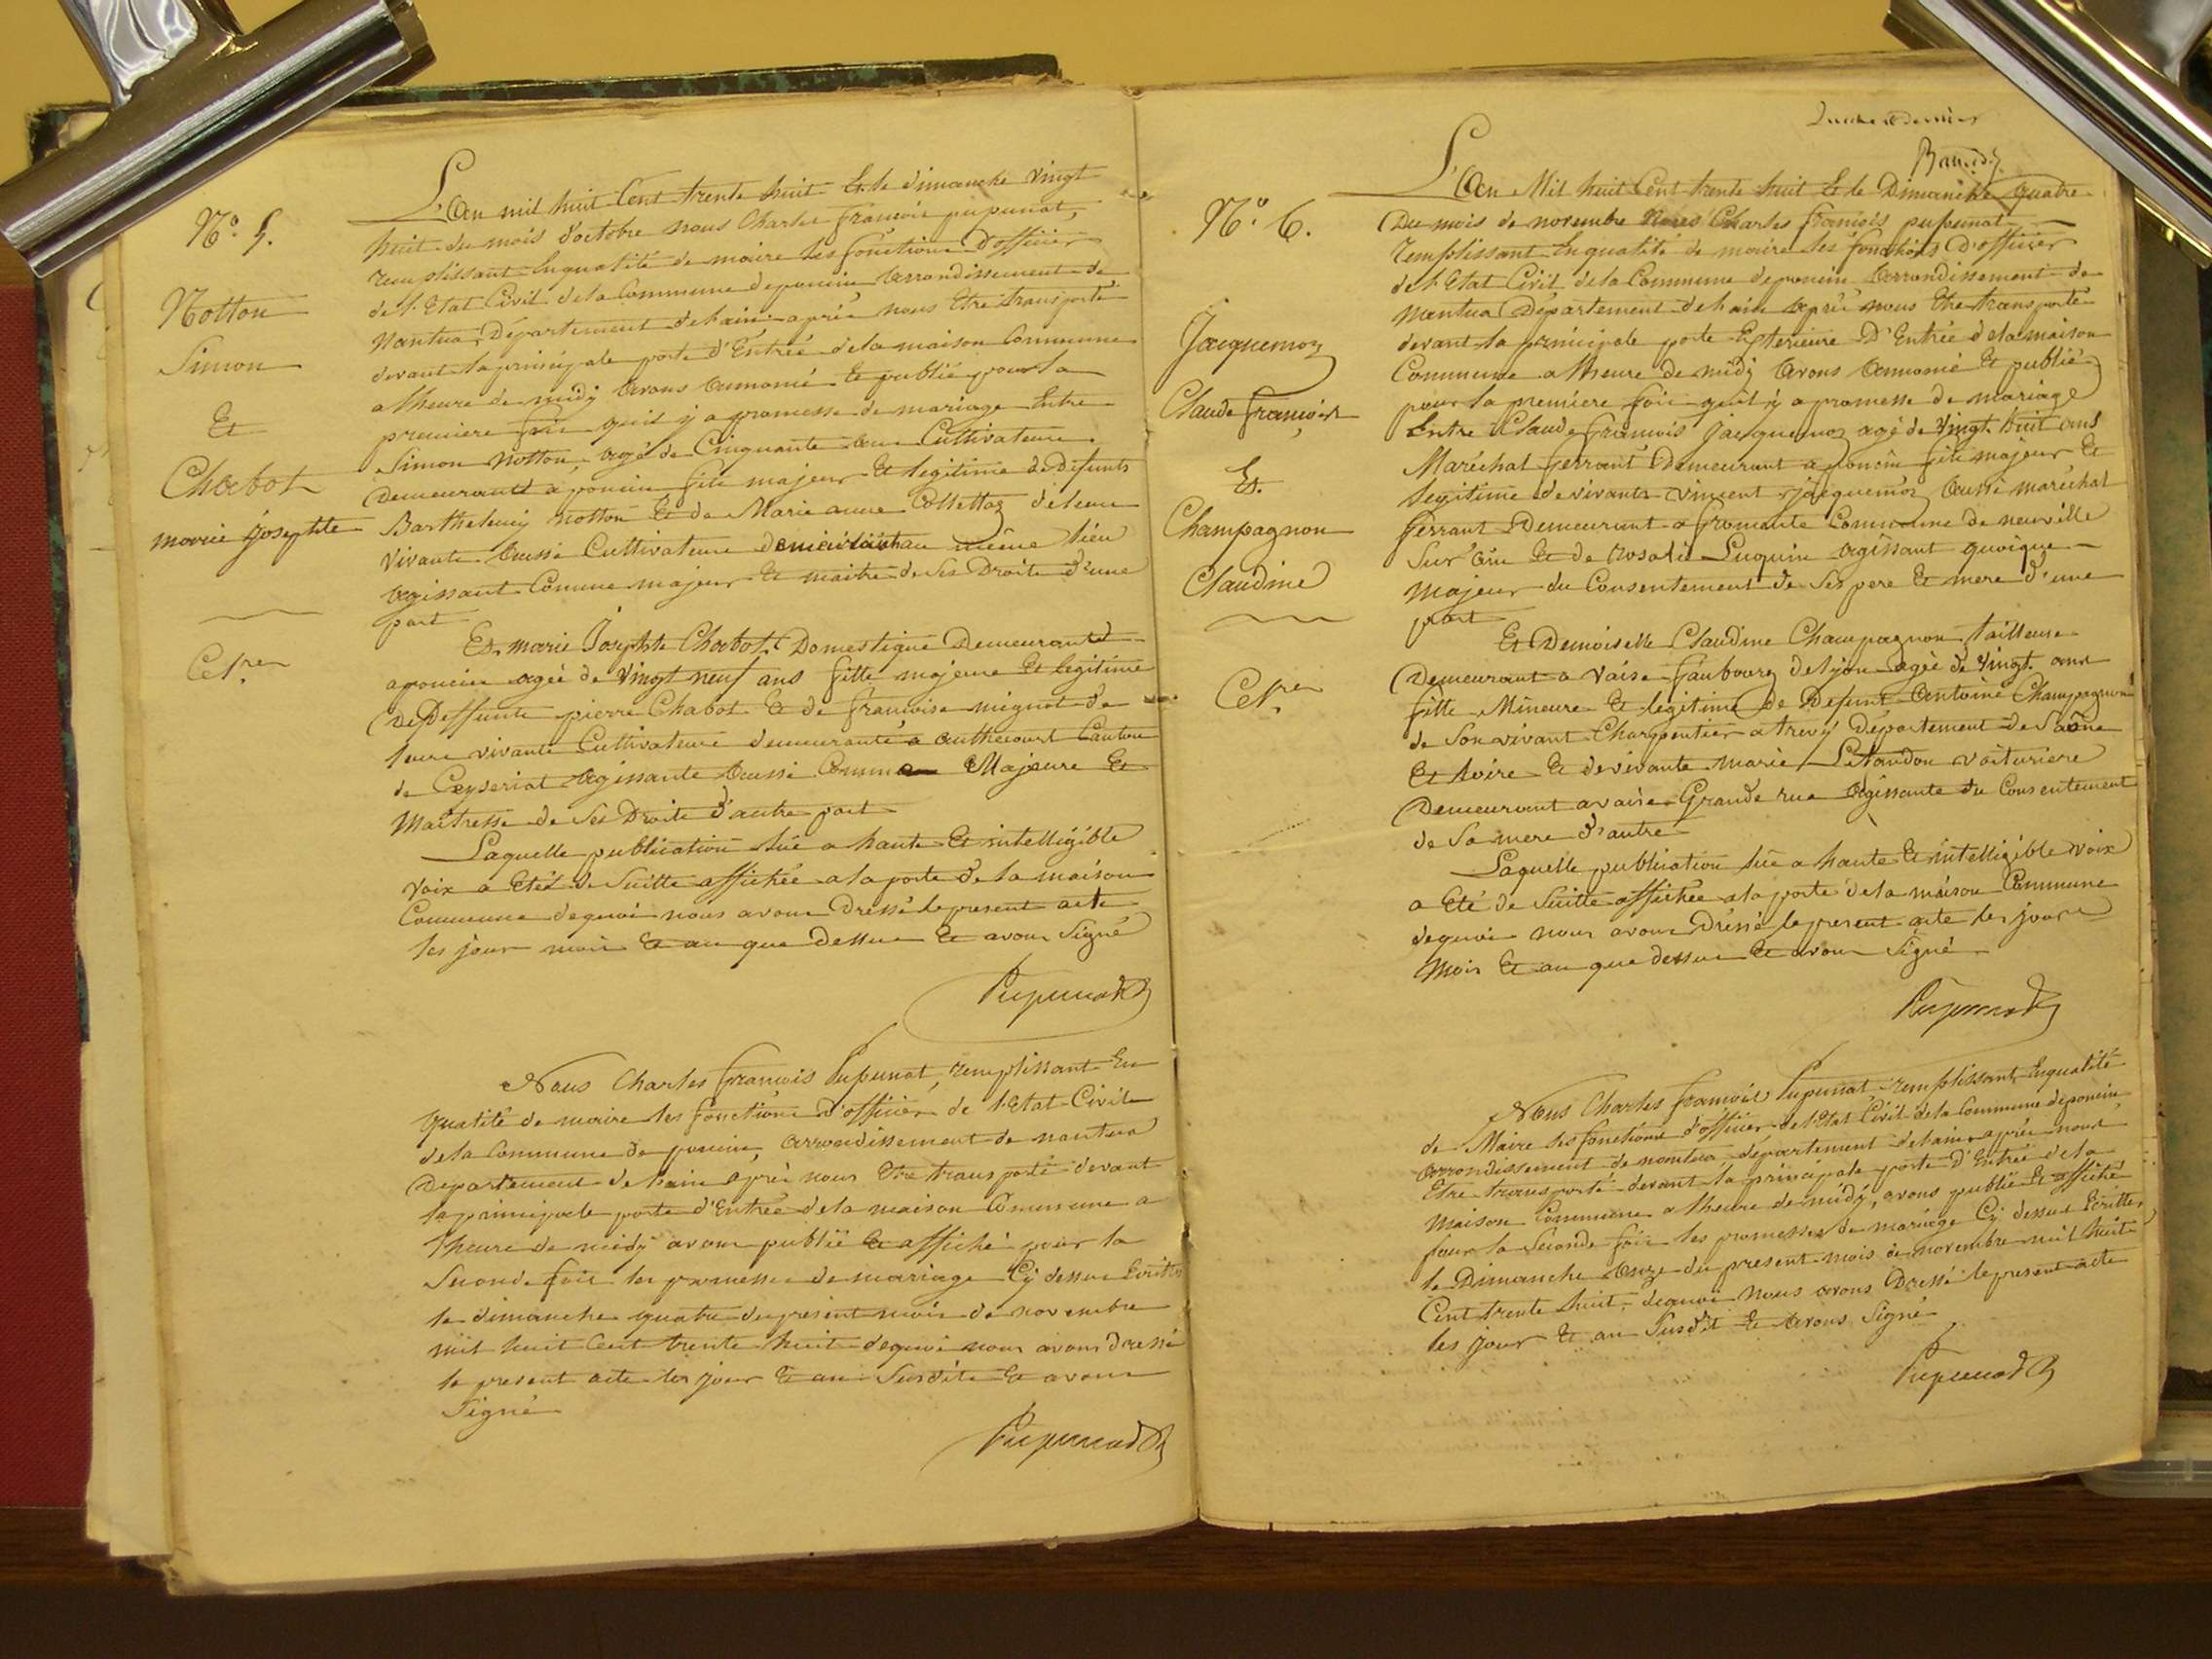 N.o 5.
Notton
Simon
Et
Chabot
marie josephte
Ce f.re
L'an mil huit Cent trente huit Et le dimanche vingt
huit du mois d'octobre nous Charles francois pupunat,
remplissant Enqualité de maire les fonctions D'officier
de l'Etat Civil dela Commune deponcin Arrondissement de
Nantua, Département delain après nous Etre transporté
devant la principale porte d'Entrée dela maison Commune
a lheure de midy avons annoncé Et publié pour la
premiere fois quil y a promesse de mariage Entre
Simon Notton, agé de Cinquante ans Cultivateur
Demeurant a poncin fils majeur Et legitime de Defunts
Barthelemy notton Et de Marie anne Collettaz deleur
vivants aussi Cultivateurs demeurant au même lieu
agissant Comme majeur Et maitre de Ses Droits d'une
part
Et marie Josephte Chabot, Domestique Demeurante
aponcin agée de vingt neuf ans fille majeure Et legitime
de Deffunts pierre Chabot Et de francoise mignot de
leurs vivants Cultivateurs demeurants a authecourt Canton
de Ceyseriat agissante aussi Comme Majeure Et
Maitresse de Ses Droits d'autre part
Laquelle publication lue a haute Et intelligible
voix a Eté de Suitte affichée ala porte de la maison
Commune dequoi nous avons Dressé le present acte
les jour mois Et an que dessus Et avons Signé
Pupunat
Nous Charles francois Pupunat, remplissant En
qualité de maire les fonctions d'officier de l'Etat Civil
dela Commune de poncin, arrondissement de nantua
Département de lain après nous Etre transporté devant
la principale porte d'Entrée dela maison Commune a
l'heure de midy avons publié Et affiché pour la
Seconde fois les promesses de mariage Cy dessus Ecrittes
le dimanche quatre du present mois de novembre
mil huit Cent trente huit dequoi nous avons dressé
le present acte les jour Et an Susdits Et avons
Signé
Pupunat
N.o 6.
Jacquemoz
Claude francois
Et
Champagnon
Claudine
Ce f.re
L'an Mil huit Cent trente huit Et le Dimanche quatre
Du mois de novembre Nous Charles francois pupunat
remplissant Enqualité de maire les fonctions D'officier
del'Etat Civil dela Commune deponcin Arrondissement de
Nantua Département delain après nous Etre transporté
devant la principale porte Exterieure D'Entrée dela maison
Commune a lheure de midy avons annoncé Et publié
pour la premiere fois quil y a promesse de mariage
Entre Claude francois jacquemoz agé de vingt huit ans
Maréchal ferrant Demeurant a poncin fils majeur Et
legitime de vivants vincent jacquemoz aussi maréchal
ferrant Demeurant a fromante Commune de neuville
Sur ain Et de rosalie Luquin agissant quoique
majeur du Consentement de Ses pere Et mere d'une
part
Et Demoiselle Claudine Champagnon tailleuse
Demeurant a vaise faubourg delyon agée de vingt ans
fille Mineure Et legitime De Defunt Antoine Champagnon
de Son vivant Charpentier a trevy département de Saône
Et loire Et de vivante marie Letandon voituriere
Demeurant a vaise Grande rue agissante du Consentement
de Sa mere d'autre
Laquelle publication lue a haute Et intelligible voix
a Eté de Suitte affichée ala porte dela maison Commune
dequoi nous avons Dressé le present acte les jour
Mois Et an que dessus Et avons Signé
Pupunat
Nous Charles francois Pupunat, remplissant, Enqualité
de Maire les fonctions d'officier de l'Etat Civil dela Commune deponcin
arrondissement de nantua, département delain après nous
Etre transporté devant la principale porte d'Entrée dela
Maison Commune a lheure de midy, avons publié Et affiché
pour la Seconde fois les promesses de mariage Cy dessus Ecrittes,
le Dimanche onze du present mois de novembre mil huit
Cent trente huit, dequoi nous avons Dressé le present acte
les jour Et an Susdit Et avons Signé
Pupunat